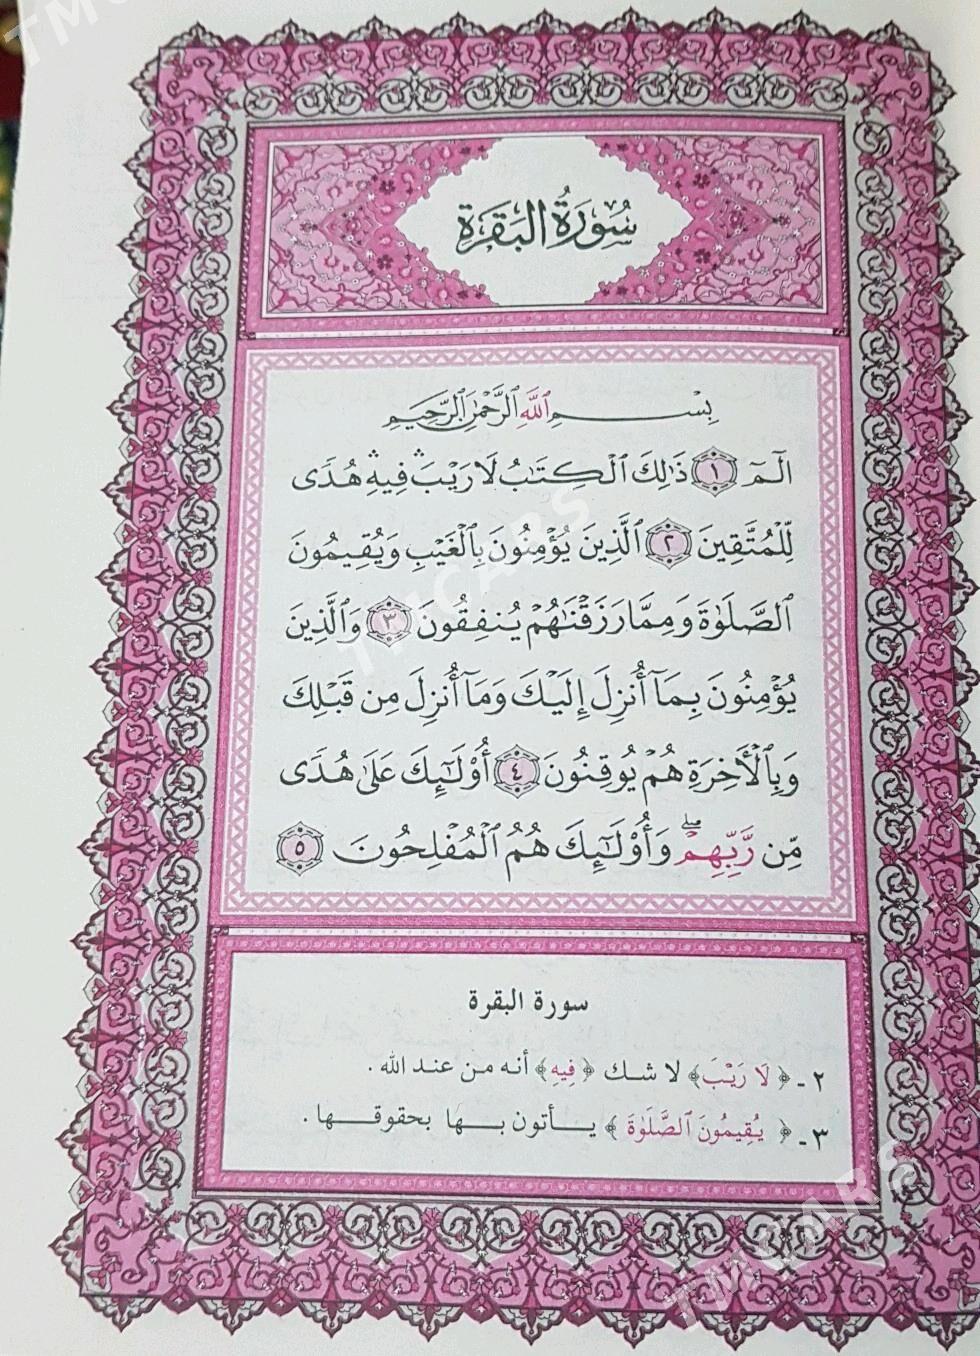 سُورَةُ الْبَقَرَةِ
بِسْمِ ٱللَّهِ ٱلرَّحْمَٰنِ ٱلرَّحِيمِ
الٓمٓ ١ ذَٰلِكَ ٱلْكِتَٰبُ لَا رَيْبَ ۛ فِيهِ ۛ هُدًى
لِّلْمُتَّقِينَ ٢ ٱلَّذِينَ يُؤْمِنُونَ بِٱلْغَيْبِ وَيُقِيمُونَ
ٱلصَّلَوٰةَ وَمِمَّا رَزَقْنَٰهُمْ يُنفِقُونَ ٣ وَٱلَّذِينَ
يُؤْمِنُونَ بِمَآ أُنزِلَ إِلَيْكَ وَمَآ أُنزِلَ مِن قَبْلِكَ
وَبِٱلْأَخِرَةِ هُمْ يُوقِنُونَ ٤ أُوْلَٰٓئِكَ عَلَىٰ هُدًى
مِّن رَّبِّهِمْ ۖ وَأُوْلَٰٓئِكَ هُمُ ٱلْمُفْلِحُونَ ٥
سورة البقرة
٢ - ﴿ لَا رَيْبَ ﴾ لا شك ﴿ فِيهِ ﴾ أنه من عند الله .
٣ - ﴿ يُقِيمُونَ ٱلصَّلَوٰةَ ﴾ يأتون بها بحقوقها .
TMCARS
TMCARS